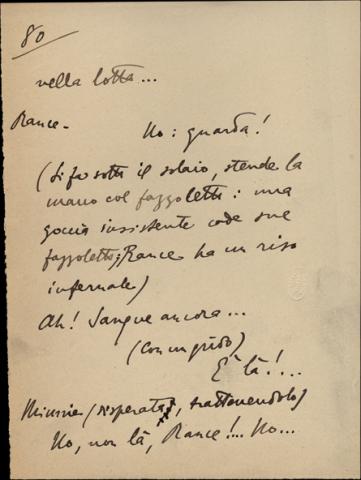 80
nella lotta...
Rance - No: guarda!
(Si fa sotto il solaio, stende la
mano col fazzoletto: una
goccia insistente cade sul
fazzoletto; Rance ha un riso
infernale)
Ah! Sangue ancora...
(Con un grido)
È là!...
Minnie (disperata, trattenendolo)
No, non là, Rance!... No...